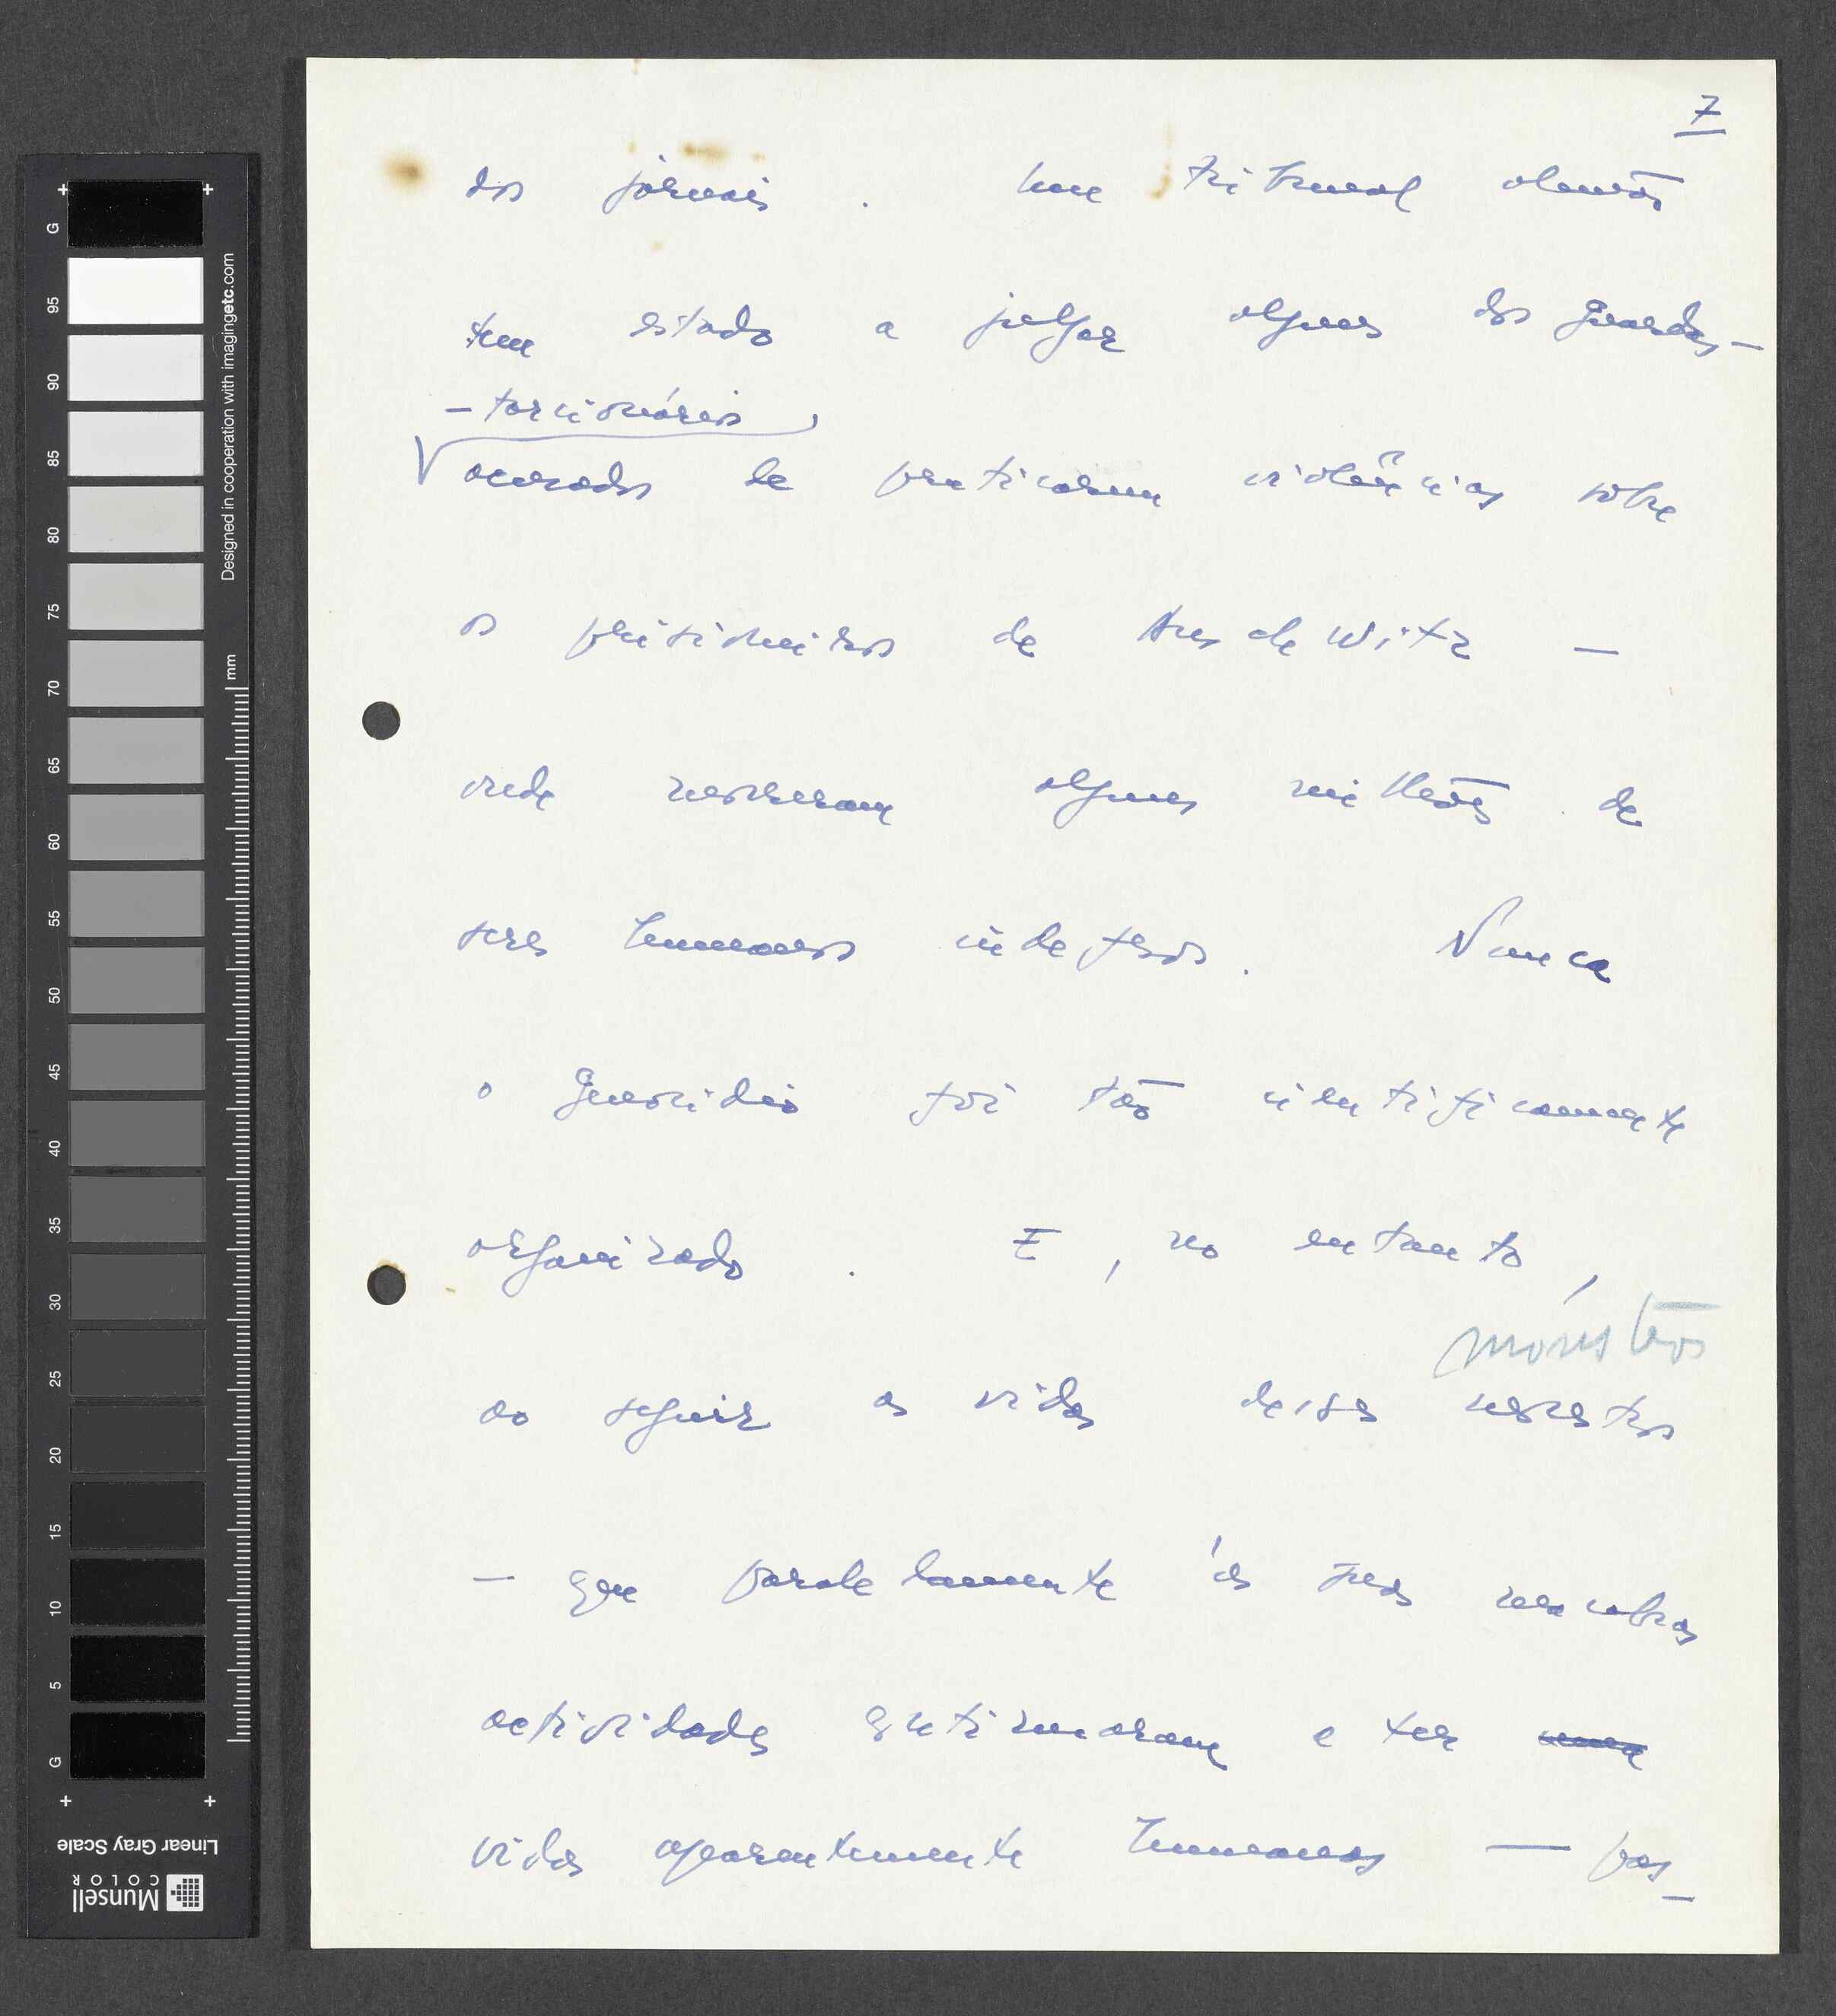 7
dos jornais. Um tribunal alemão
tem estado a julgar alguns dos guardas-
-torcionários
acusados de praticarem violências sobre
os prisioneiros de Auschwitz —
onde morreram alguns milhões de
seres humanos indefesos. Nunca
o genocídio foi tão cientificamente
organizado. E, no entanto,
monstros
ao seguir as vidas desses monstros
— que paralelamente às suas macabras
actividades continuaram a ter
vidas aparentemente humanas — pas-
G
95
90
85
80
75
70
65
60
55
50
45
40
35
30
25
20
15
10
5
G
Designed in cooperation with imagingetc.com
mm
Linear Gray Scale
Munsell
COLOR